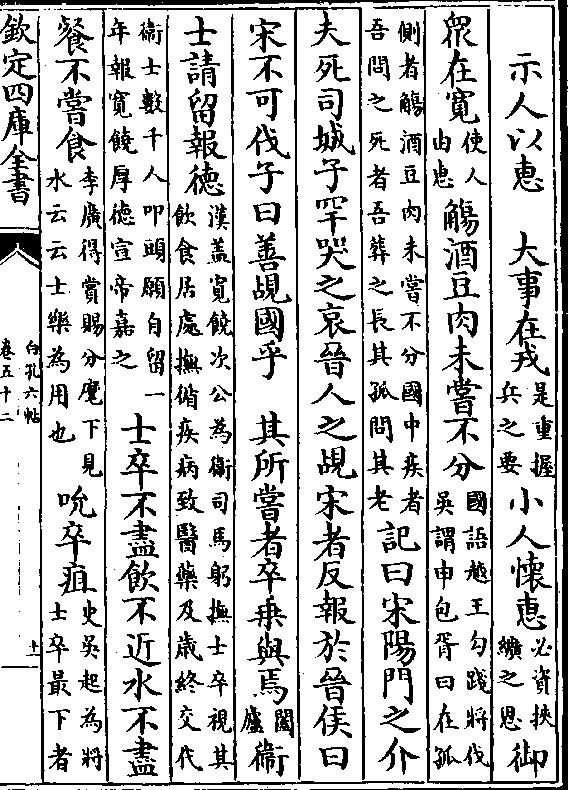 示人以惠　大事在戎是重握兵之要小人懷惠必資挾纊之恩御
眾在寛使人由惠觴酒豆肉未嘗不分國語越王勾踐將伐吳謂申包胥曰在孤
側者觴酒豆肉未嘗不分國中疾者吾問之死者吾葬之長其孤問其老記曰宋陽門之介
夫死司城子罕哭之哀晉人之覘宋者反報於晉侯曰
宋不可伐子曰善覘國乎　其所嘗者卒乗與焉闔廬衞
士請留報德漢蓋寛饒次公為衞司馬躬撫士卒視其飲食居處撫循疾病致醫藥及歲終交代
衞士數千人叩頭願自留一年報寛饒厚德宣帝嘉之士卒不盡飲不近水不盡
餐不嘗食李廣得賞賜分麾下見水云云士樂為用也吮卒疽史吳起為將士卒最下者
欽定四庫全書
白孔六帖
卷五十二
十一